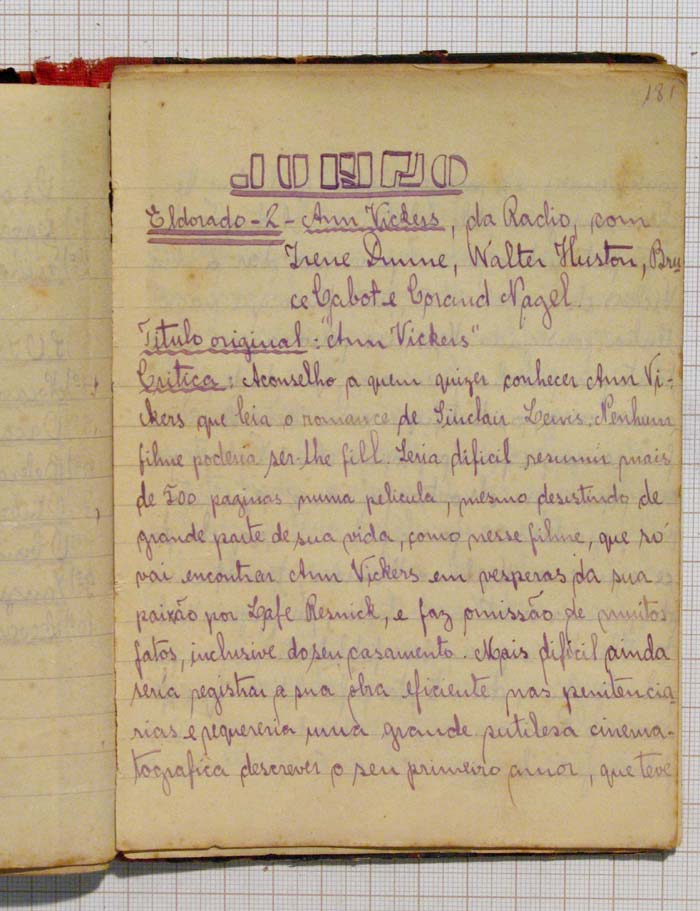 181
JUNHO
Eldorado - 2 - Ann Vickers, da Radio, com
Irene Dunne, Walter Huston, Bru
ce Cabot e Corand Nagel
Titulo original: "Ann Vickers"
Critica: Aconselho a quem quizer conhecer Ann Vi-
ckers que leia o romance de Sinclair Lewis. Nenhum
filme poderia ser-lhe fiel. Seria dificil resumir mais
de 500 paginas numa pelicula, mesmo desistindo de
grande parte de sua vida, como nesse filme, que só
vai encontrar Ann Vickers em vesperas da sua
paixão por Lafe Resnick, e faz omissão de muitos
fatos, inclusive do seu casamento. Mais dificil ainda
seria registrar a sua obra eficiente nas penitencia
rias e requereria uma grande sutilesa cinema-
tografica descrever o seu primeiro amor, que teve